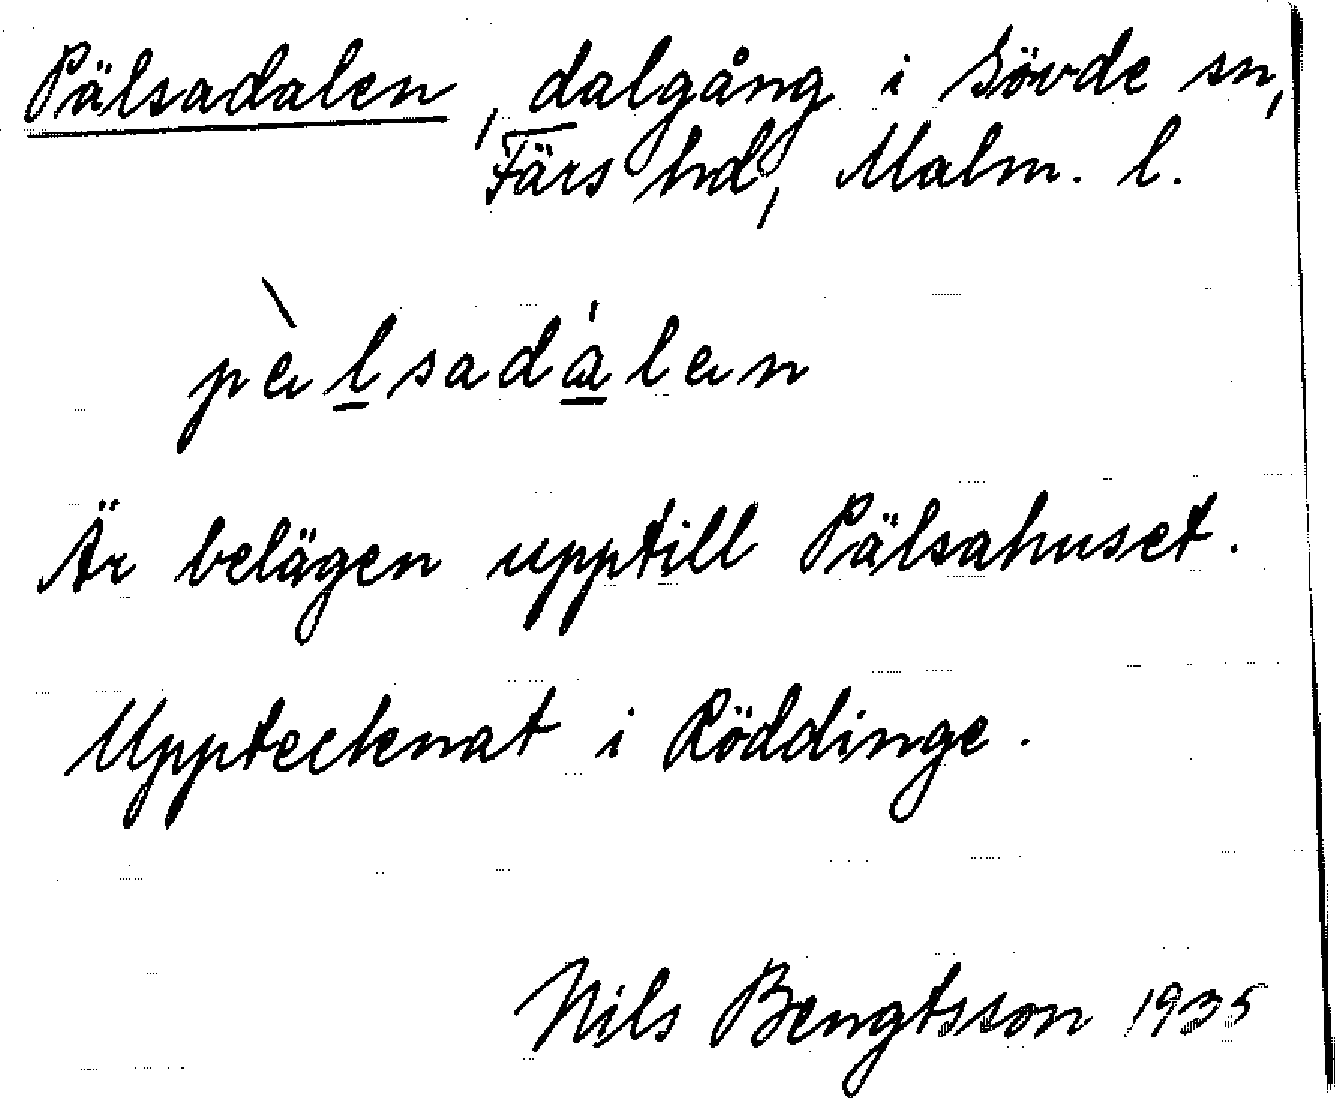 Pälsadalen, dalgång i Sövde sn,
Färs hd, Malm. l.
pælsadalæn
Är belägen upptill Pälsahuset.
Upptecknat i Röddinge.
Nils Bengtsson 1935